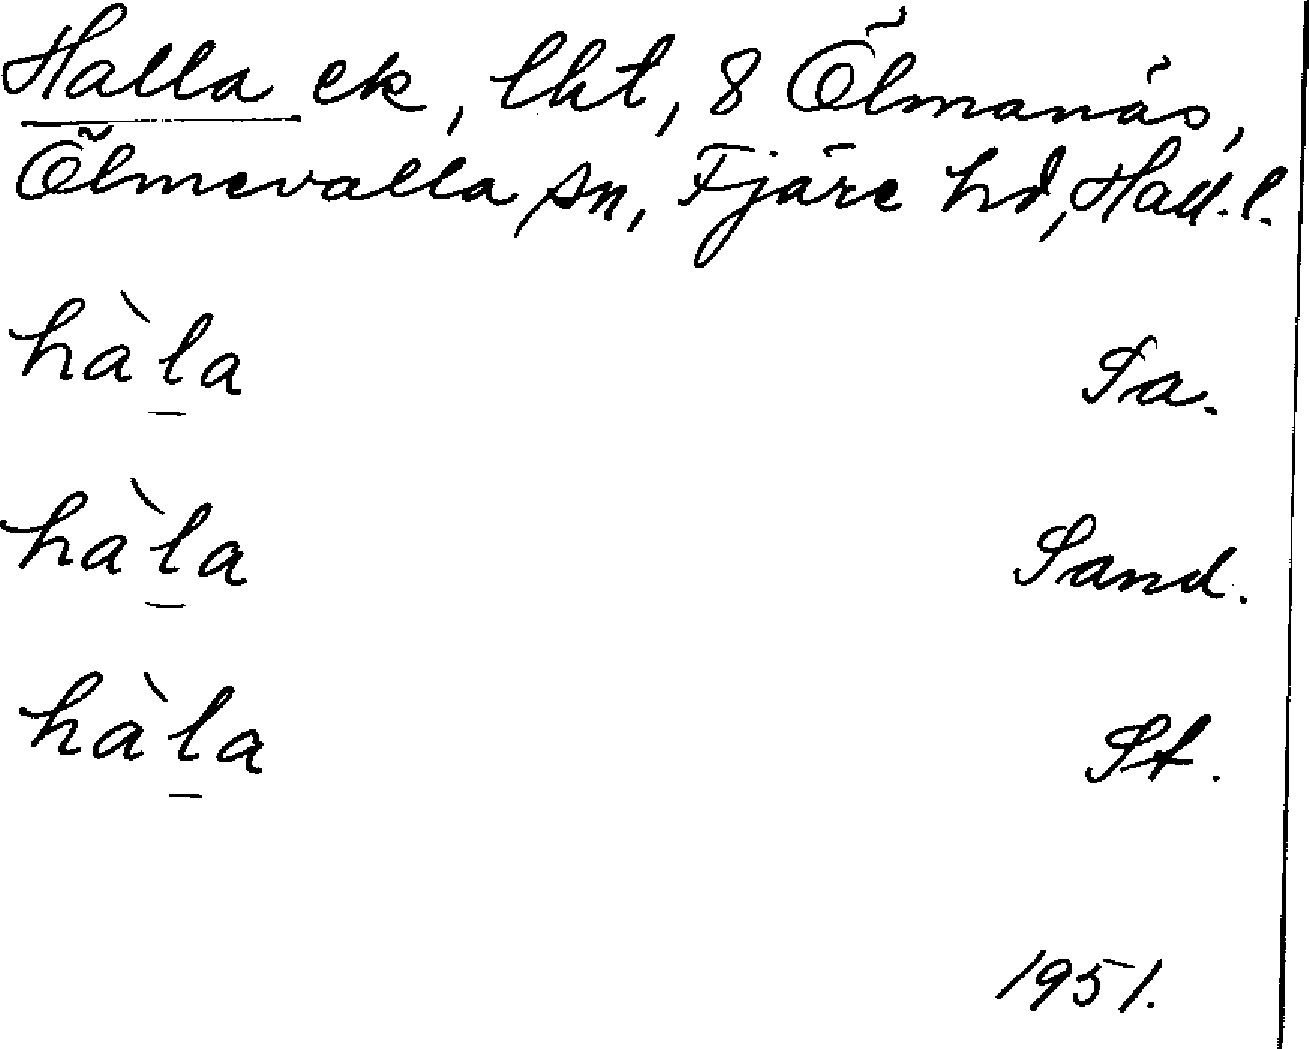 Halla ek, lht, 8 Ölmanäs,
Ölmevalla sn, Fjäre hd, Hall. l.
hàl̲a Sa.
hàl̲a Sand.
hàl̲a St.
1951.